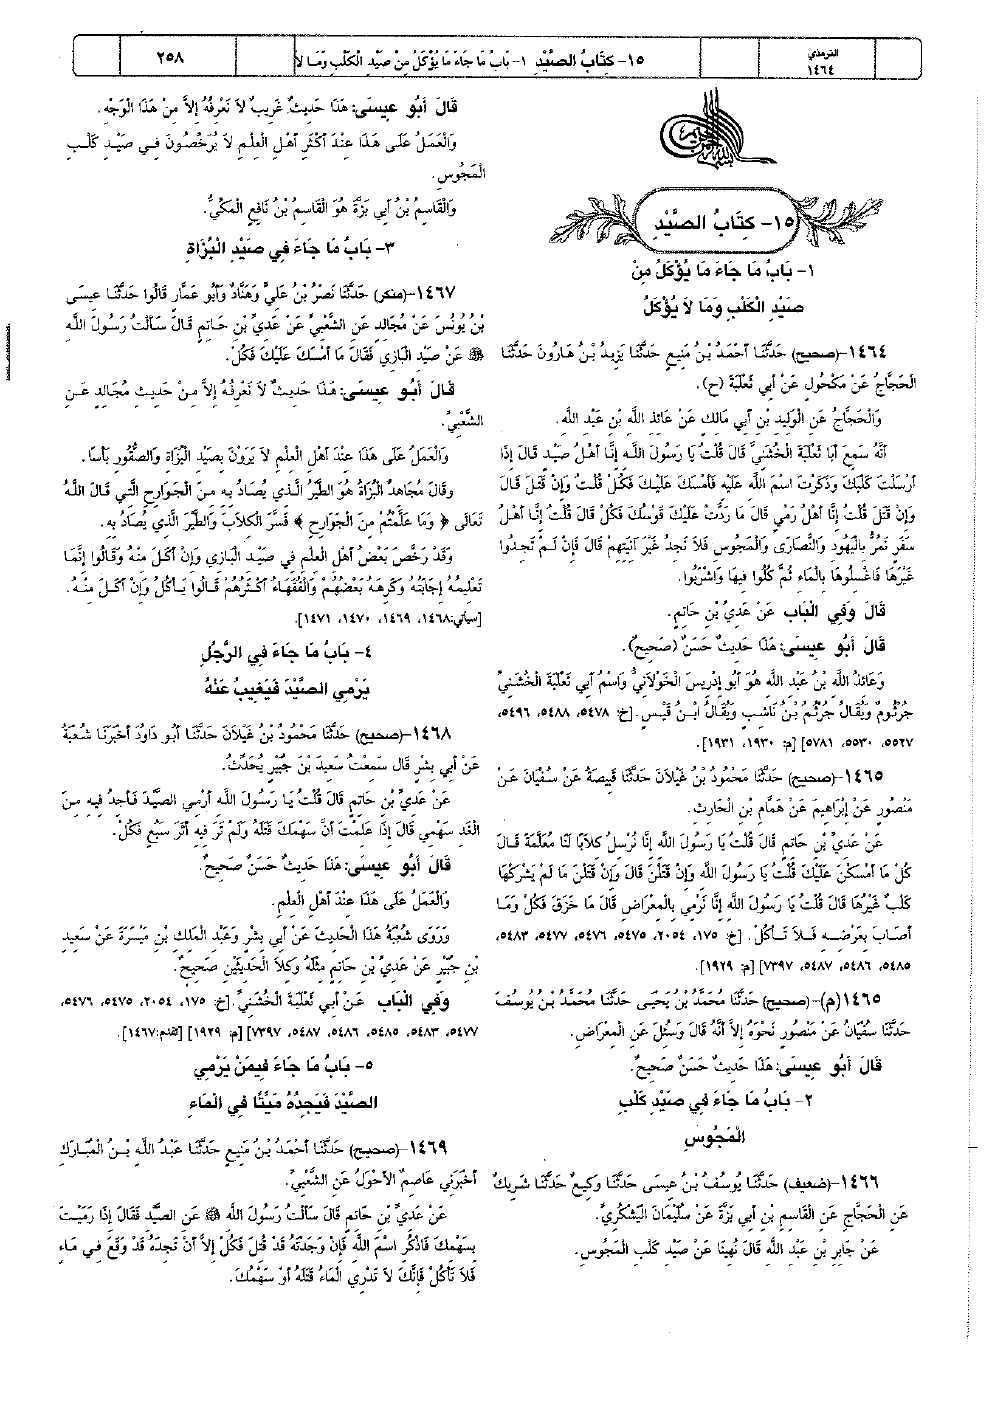 الترمذي
١٤٦٤
١٥- كِتَابُ الصَّيْدِ ١- بَابُ مَا جَاءَ مَا يُؤْكَلُ مِنْ صَيْدِ الْكَلْبِ وَمَا لا
٢٥٨
١٥- كِتَابُ الصَّيْدِ
١- بَابُ مَا جَاءَ مَا يُؤْكَلُ مِنْ
صَيْدِ الْكَلْبِ وَمَا لاَ يُؤْكَلُ
١٤٦٤-(صحيح) حَدَّثَنَا أَحْمَدُ بْنُ مَنِيعٍ حَدَّثَنَا يَزِيدُ بْنُ هَارُونَ حَدَّثَنَا
الْحَجَّاجُ عَنْ مَكْحُولٍ عَنْ أَبِي ثَعْلَبَةَ (ح).
وَالْحَجَّاجُ عَنِ الْوَلِيدِ بْنِ أَبِي مَالِكٍ عَنْ عَائِذِ اللَّهِ بْنِ عَبْدِ اللَّهِ.
أَنَّهُ سَمِعَ أَبَا ثَعْلَبَةَ الْخُشَنِيَّ قَالَ قُلْتُ يَا رَسُولَ اللَّهِ إِنَّا أَهْلُ صَيْدٍ قَالَ إِذَا
أَرْسَلْتَ كَلْبَكَ وَذَكَرْتَ اسْمَ اللَّهِ عَلَيْهِ فَأَمْسَكَ عَلَيْكَ فَكُلْ قُلْتُ وَإِنْ قَتَلَ قَالَ
وَإِنْ قَتَلَ قُلْتُ إِنَّا أَهْلُ رَمْيٍ قَالَ مَا رَدَّتْ عَلَيْكَ قَوْسُكَ فَكُلْ قَالَ قُلْتُ إِنَّا أَهْلُ
سَفَرٍ نَمُرُّ بِالْيَهُودِ وَالنَّصَارَى وَالْمَجُوسِ فَلاَ نَجِدُ غَيْرَ آنِيَتِهِمْ قَالَ فَإِنْ لَمْ تَجِدُوا
غَيْرَهَا فَاغْسِلُوهَا بِالْمَاءِ ثُمَّ كُلُوا فِيهَا وَاشْرَبُوا.
قَالَ وَفِي الْبَابِ عَنْ عَدِيِّ بْنِ حَاتِمٍ.
قَالَ أَبُو عِيسَى: هَذَا حَدِيثٌ حَسَنٌ (صَحِيحٌ).
وَعَائِذُ اللَّهِ بْنُ عَبْدِ اللَّهِ هُوَ أَبُو إِدْرِيسَ الْخَوْلاَنِيُّ وَاسْمُ أَبِي ثَعْلَبَةَ الْخُشَنِيِّ
جُرْثُومٌ وَيُقَالُ جُرْثُمُ بْنُ نَاشِبٍ وَيُقَالُ ابْنُ قَيْسٍ. [خ: ٥٤٧٨، ٥٤٨٨، ٥٤٩٦،
٥٥٢٧، ٥٥٣٠، ٥٧٨١] [م: ١٩٣٠، ١٩٣١].
١٤٦٥-(صحيح) حَدَّثَنَا مَحْمُودُ بْنُ غَيْلاَنَ حَدَّثَنَا قَبِيصَةُ عَنْ سُفْيَانَ عَنْ
مَنْصُورٍ عَنْ إِبْرَاهِيمَ عَنْ هَمَّامِ بْنِ الْحَارِثِ.
عَنْ عَدِيِّ بْنِ حَاتِمٍ قَالَ قُلْتُ يَا رَسُولَ اللَّهِ إِنَّا نُرْسِلُ كِلاَبًا لَنَا مُعَلَّمَةً قَالَ
كُلْ مَا أَمْسَكْنَ عَلَيْكَ قُلْتُ يَا رَسُولَ اللَّهِ وَإِنْ قَتَلْنَ قَالَ وَإِنْ قَتَلْنَ مَا لَمْ يَشْرَكْهَا
كَلْبٌ غَيْرُهَا قَالَ قُلْتُ يَا رَسُولَ اللَّهِ إِنَّا نَرْمِي بِالْمِعْرَاضِ قَالَ مَا خَزَقَ فَكُلْ وَمَا
أَصَابَ بِعَرْضِهِ فَلاَ تَأْكُلْ. [خ: ١٧٥، ٢٠٥٤، ٥٤٧٥، ٥٤٧٦، ٥٤٧٧، ٥٤٨٣،
٥٤٨٥، ٥٤٨٦، ٥٤٨٧، ٧٣٩٧] [م: ١٩٢٩].
١٤٦٥(م)-(صحيح) حَدَّثَنَا مُحَمَّدُ بْنُ يَحْيَى حَدَّثَنَا مُحَمَّدُ بْنُ يُوسُفَ
حَدَّثَنَا سُفْيَانُ عَنْ مَنْصُورٍ نَحْوَهُ إِلاَّ أَنَّهُ قَالَ وَسُئِلَ عَنِ الْمِعْرَاضِ.
قَالَ أَبُو عِيسَى: هَذَا حَدِيثٌ حَسَنٌ صَحِيحٌ.
٢- بَابُ مَا جَاءَ فِي صَيْدِ كَلْبِ
الْمَجُوسِ
١٤٦٦-(ضعيف) حَدَّثَنَا يُوسُفُ بْنُ عِيسَى حَدَّثَنَا وَكِيعٌ حَدَّثَنَا شَرِيكٌ
عَنِ الْحَجَّاجِ عَنِ الْقَاسِمِ بْنِ أَبِي بَزَّةَ عَنْ سُلَيْمَانَ الْيَشْكُرِيِّ.
عَنْ جَابِرِ بْنِ عَبْدِ اللَّهِ قَالَ نُهِينَا عَنْ صَيْدِ كَلْبِ الْمَجُوسِ.
قَالَ أَبُو عِيسَى: هَذَا حَدِيثٌ غَرِيبٌ لاَ نَعْرِفُهُ إِلاَّ مِنْ هَذَا الْوَجْهِ.
وَالْعَمَلُ عَلَى هَذَا عِنْدَ أَكْثَرِ أَهْلِ الْعِلْمِ لاَ يُرَخِّصُونَ فِي صَيْدِ كَلْبِ
الْمَجُوسِ.
وَالْقَاسِمُ بْنُ أَبِي بَزَّةَ هُوَ الْقَاسِمُ بْنُ نَافِعٍ الْمَكِّيُّ.
٣- بَابُ مَا جَاءَ فِي صَيْدِ الْبُزَاةِ
١٤٦٧-(منكر) حَدَّثَنَا نَصْرُ بْنُ عَلِيٍّ وَهَنَّادٌ وَأَبُو عَمَّارٍ قَالُوا حَدَّثَنَا عِيسَى
بْنُ يُونُسَ عَنْ مُجَالِدٍ عَنِ الشَّعْبِيِّ عَنْ عَدِيِّ بْنِ حَاتِمٍ قَالَ سَأَلْتُ رَسُولَ اللَّهِ
ﷺ عَنْ صَيْدِ الْبَازِي فَقَالَ مَا أَمْسَكَ عَلَيْكَ فَكُلْ.
قَالَ أَبُو عِيسَى: هَذَا حَدِيثٌ لاَ نَعْرِفُهُ إِلاَّ مِنْ حَدِيثِ مُجَالِدٍ عَنِ
الشَّعْبِيِّ.
وَالْعَمَلُ عَلَى هَذَا عِنْدَ أَهْلِ الْعِلْمِ لاَ يَرَوْنَ بِصَيْدِ الْبُزَاةِ وَالصُّقُورِ بَأْسًا.
وَقَالَ مُجَاهِدٌ الْبُزَاةُ هُوَ الطَّيْرُ الَّذِي يُصَادُ بِهِ مِنَ الْجَوَارِحِ الَّتِي قَالَ اللَّهُ
تَعَالَى ﴿ وَمَا عَلَّمْتُمْ مِنَ الْجَوَارِحِ ﴾ فَسَّرَ الْكِلاَبَ وَالطَّيْرَ الَّذِي يُصَادُ بِهِ.
وَقَدْ رَخَّصَ بَعْضُ أَهْلِ الْعِلْمِ فِي صَيْدِ الْبَازِي وَإِنْ أَكَلَ مِنْهُ وَقَالُوا إِنَّمَا
تَعْلِيمُهُ إِجَابَتُهُ وَكَرِهَهُ بَعْضُهُمْ وَالْفُقَهَاءُ أَكْثَرُهُمْ قَالُوا يَأْكُلُ وَإِنْ أَكَلَ مِنْهُ.
[سيأتي:١٤٦٨، ١٤٦٩، ١٤٧٠، ١٤٧١].
٤- بَابُ مَا جَاءَ فِي الرَّجُلِ
يَرْمِي الصَّيْدَ فَيَغِيبُ عَنْهُ
١٤٦٨-(صحيح) حَدَّثَنَا مَحْمُودُ بْنُ غَيْلاَنَ حَدَّثَنَا أَبُو دَاوُدَ أَخْبَرَنَا شُعْبَةُ
عَنْ أَبِي بِشْرٍ قَالَ سَمِعْتُ سَعِيدَ بْنَ جُبَيْرٍ يُحَدِّثُ.
عَنْ عَدِيِّ بْنِ حَاتِمٍ قَالَ قُلْتُ يَا رَسُولَ اللَّهِ أَرْمِي الصَّيْدَ فَأَجِدُ فِيهِ مِنَ
الْغَدِ سَهْمِي قَالَ إِذَا عَلِمْتَ أَنَّ سَهْمَكَ قَتَلَهُ وَلَمْ تَرَ فِيهِ أَثَرَ سَبُعٍ فَكُلْ.
قَالَ أَبُو عِيسَى: هَذَا حَدِيثٌ حَسَنٌ صَحِيحٌ.
وَالْعَمَلُ عَلَى هَذَا عِنْدَ أَهْلِ الْعِلْمِ.
وَرَوَى شُعْبَةُ هَذَا الْحَدِيثَ عَنْ أَبِي بِشْرٍ وَعَبْدِ الْمَلِكِ بْنِ مَيْسَرَةَ عَنْ سَعِيدِ
بْنِ جُبَيْرٍ عَنْ عَدِيِّ بْنِ حَاتِمٍ مِثْلَهُ وَكِلاَ الْحَدِيثَيْنِ صَحِيحٌ.
وَفِي الْبَابِ عَنْ أَبِي ثَعْلَبَةَ الْخُشَنِيِّ. [خ: ١٧٥، ٢٠٥٤، ٥٤٧٥، ٥٤٧٦،
٥٤٧٧، ٥٤٨٣، ٥٤٨٥، ٥٤٨٦، ٥٤٨٧، ٧٣٩٧] [م: ١٩٢٩] [تقدم:١٤٦٧].
٥- بَابُ مَا جَاءَ فِيمَنْ يَرْمِي
الصَّيْدَ فَيَجِدُهُ مَيِّتًا فِي الْمَاءِ
١٤٦٩-(صحيح) حَدَّثَنَا أَحْمَدُ بْنُ مَنِيعٍ حَدَّثَنَا عَبْدُ اللَّهِ بْنُ الْمُبَارَكِ
أَخْبَرَنِي عَاصِمٌ الأَحْوَلُ عَنِ الشَّعْبِيِّ.
عَنْ عَدِيِّ بْنِ حَاتِمٍ قَالَ سَأَلْتُ رَسُولَ اللَّهِ ﷺ عَنِ الصَّيْدِ فَقَالَ إِذَا رَمَيْتَ
بِسَهْمِكَ فَاذْكُرِ اسْمَ اللَّهِ فَإِنْ وَجَدْتَهُ قَدْ قُتِلَ فَكُلْ إِلاَّ أَنْ تَجِدَهُ قَدْ وَقَعَ فِي مَاءٍ
فَلاَ تَأْكُلْ فَإِنَّكَ لاَ تَدْرِي الْمَاءُ قَتَلَهُ أَوْ سَهْمُكَ.